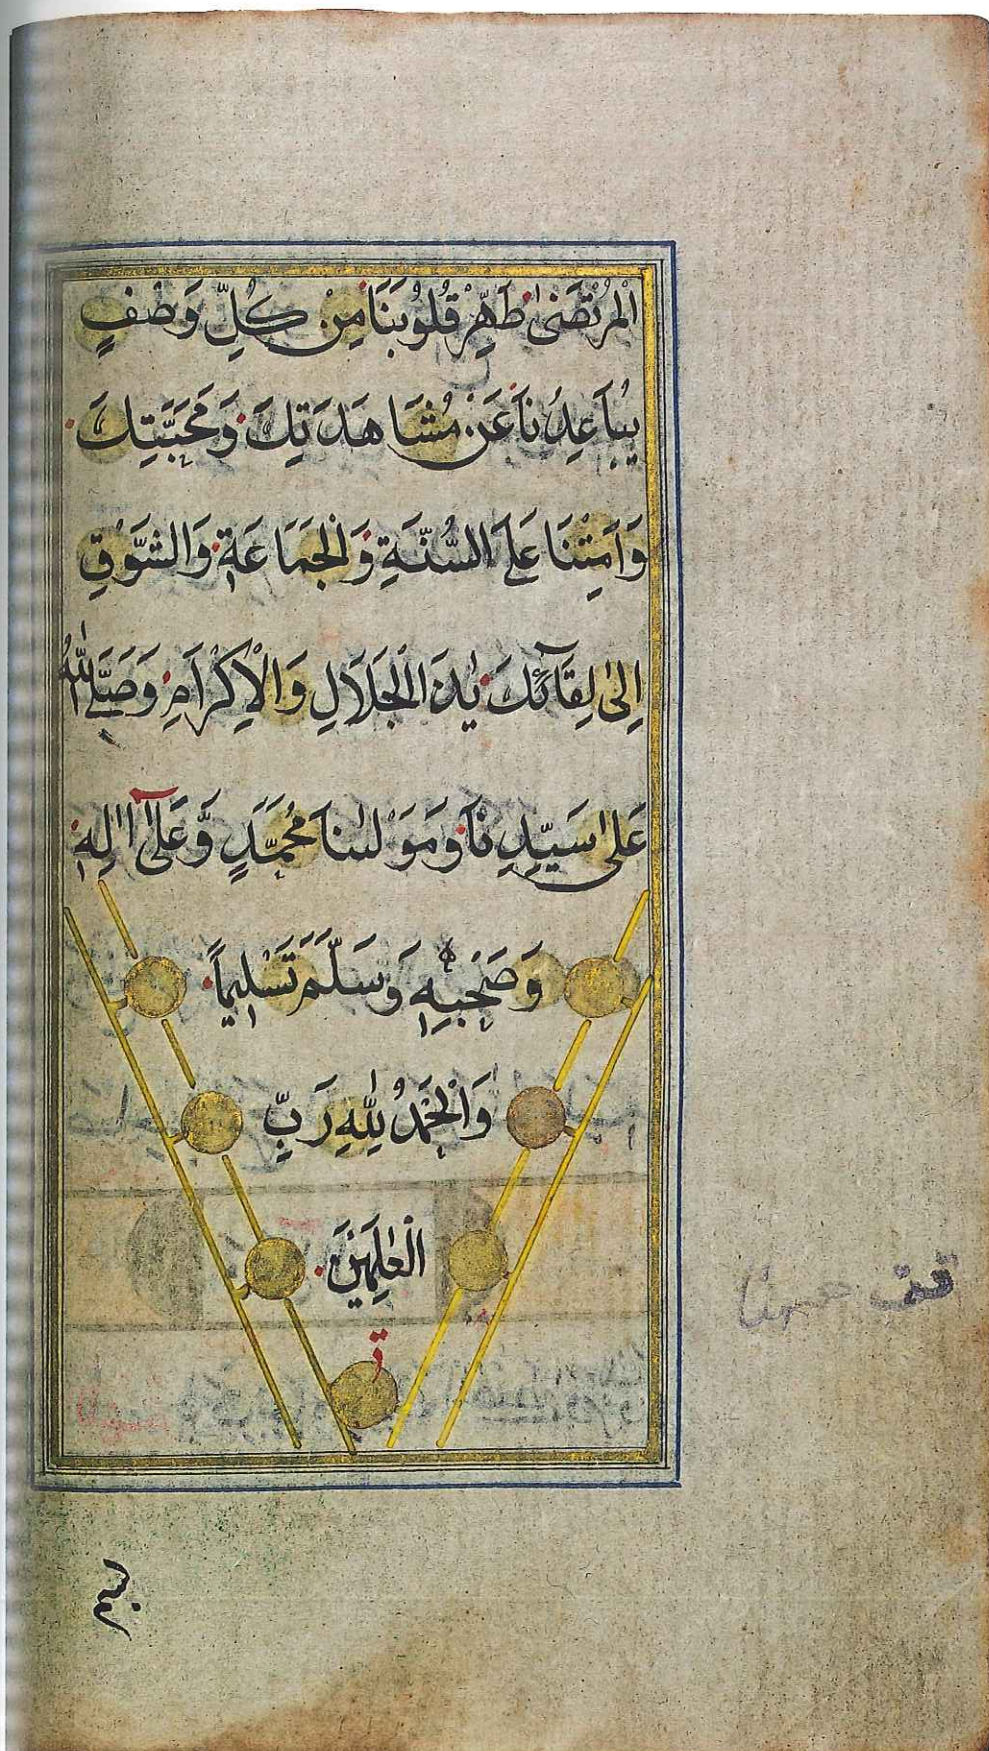 الْمُرْتَضٰى طَهِّرْ قُلُوبَنَا مِنْ كُلِّ وَصْفٍ
يُبَاعِدُنَا عَنْ مُشَاهَدَتِكَ وَمَحَبَّتِكَ
وَاَمِتْنَا عَلَى السُّنَّةِ وَالْجَمَاعَةِ وَالشَّوْقِ
اِلٰى لِقَآئِكَ يَا ذَا الْجَلَالِ وَالْاِكْرَامِ وَصَلَّى اللّٰهُ
عَلٰى سَيِّدِنَا وَمَوْلٰىنَا مُحَمَّدٍ وَّعَلٰٓى اٰلِهٖ
وَصَحْبِهٖ وَسَلَّمَ تَسْلِيمًا
وَالْحَمْدُ لِلّٰهِ رَبِّ
الْعٰلَمِينَ